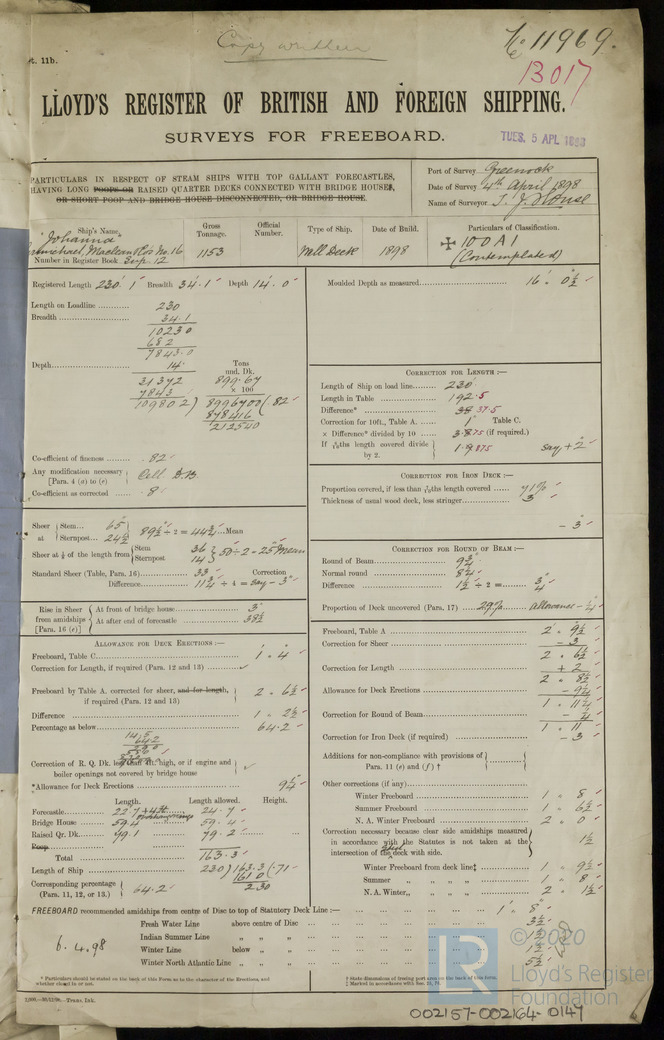 Copy written
No 11969.
13017
t. 11b.
LLOYD'S REGISTER OF BRITISH AND FOREIGN SHIPPING.
SURVEYS FOR FREEBOARD.
TUES. 5 APL 1898
PARTICULARS IN RESPECT OF STEAM SHIPS WITH TOP GALLANT FORECASTLES,
HAVING LONG POOPS OR RAISED QUARTER DECKS CONNECTED WITH BRIDGE HOUSES,
OR SHORT POOP AND BRIDGE HOUSE DISCONNECTED, OR BRIDGE HOUSE.
Port of Survey Greenock
Date of Survey 4th April 1898
Name of Surveyor
Ship's Name Gross Tonnage. Official Number. Type of Ship. Date of Build. Particulars of Classification.
"Johanna" 1153 Well Deck 1898 100A1
Maclean No. 16 (Contemplated)
Number in Register Book Sup. 12
Registered Length 230.1 Breadth 34.1 Depth 14.0
Moulded Depth as measured 16. 0½
Length on Loadline 230
Breadth 34.1
10230
682
7843.0
Depth 14
31372
7843
109802) 8996700 (.82
878416
212540
Tons und. Dk.
899.67
× 100
Co-efficient of fineness .82
Any modification necessary [Para. 4 (a) to (e) Cell D.B.
Co-efficient as corrected .8
CORRECTION FOR LENGTH:—
Length of Ship on load line 230
Length in Table 192.5
Difference* 38 37.5
Correction for 10ft., Table A. 1 Table C.
× Difference* divided by 10 3.875 (if required.)
If 6/10ths length covered divide by 2. 1.9875 say + 2
CORRECTION FOR IRON DECK:—
Proportion covered, if less than 7/10ths length covered 71%
Thickness of usual wood deck, less stringer 3
- 3
Sheer at Stem 65
Sternpost 24½ 89½ ÷ 2 = 44¾ Mean
Sheer at ⅛ of the length from Stem 36
Sternpost 14 50 ÷ 2 = 25 Mean
Standard Sheer (Table, Para. 16) 33 Correction
Difference 11¾ ÷ 4 = say - 3
Rise in Sheer from amidships [Para. 16 (e)]
At front of bridge house 3
At after end of forecastle 38½
CORRECTION FOR ROUND OF BEAM:—
Round of Beam 9¾
Normal round 8¼
Difference 1½ ÷ 2 = ¾
Proportion of Deck uncovered (Para. 17) 29% allowance - ¼
ALLOWANCE FOR DECK ERECTIONS:—
Freeboard, Table C. 1. 4
Correction for Length, if required (Para. 12 and 13)
Freeboard by Table A. corrected for sheer, and for length, if required (Para. 12 and 13) 2. 6½
Difference 1. 2½
Percentage as below 64.2
Correction of R. Q. Dk. less than 4ft. high, or if engine and
boiler openings not covered by bridge house
*Allowance for Deck Erections 9¼
Length. Length allowed. Height.
Forecastle 22.7 + 4 24.7
Bridge House 59.4 59.4
Raised Qr. Dk. 99.1 79.2
Poop
Total 163.3
Length of Ship 230) 163.3 (.71
1610
230
Corresponding percentage (Para. 11, 12, or 13.) 64.2
Freeboard, Table A 2. 9½
Correction for Sheer - 3
2. 6½
Correction for Length + 2
2. 8½
Allowance for Deck Erections - 9¼
1. 11¼
Correction for Round of Beam - ¼
1. 11
Correction for Iron Deck (if required) - 3
Additions for non-compliance with provisions of
Para. 11 (e) and (f) †
Other corrections (if any)
Winter Freeboard 1. 8
Summer Freeboard 1. 6½
N. A. Winter Freeboard 2. 0
Correction necessary because clear side amidships measured
in accordance with the Statutes is not taken at the
intersection of the deck with side. 1½
Winter Freeboard from deck line‡ 1. 9½
Summer 1. 8
N. A. Winter 2. 1½
FREEBOARD recommended amidships from centre of Disc to top of Statutory Deck Line:— 1. 8
Fresh Water Line above centre of Disc 3½
Indian Summer Line 1½
Winter Line below 1½
Winter North Atlantic Line 5½
6.4.98
* Particulars should be stated on the back of this Form as to the character of the Erections, and
whether closed in or not.
† State dimensions of freeing port area on the back of this form.
‡ Marked in accordance with
Trans. Ink.
© 2020
Lloyd's Register
Foundation
LR
002157-002164-0147